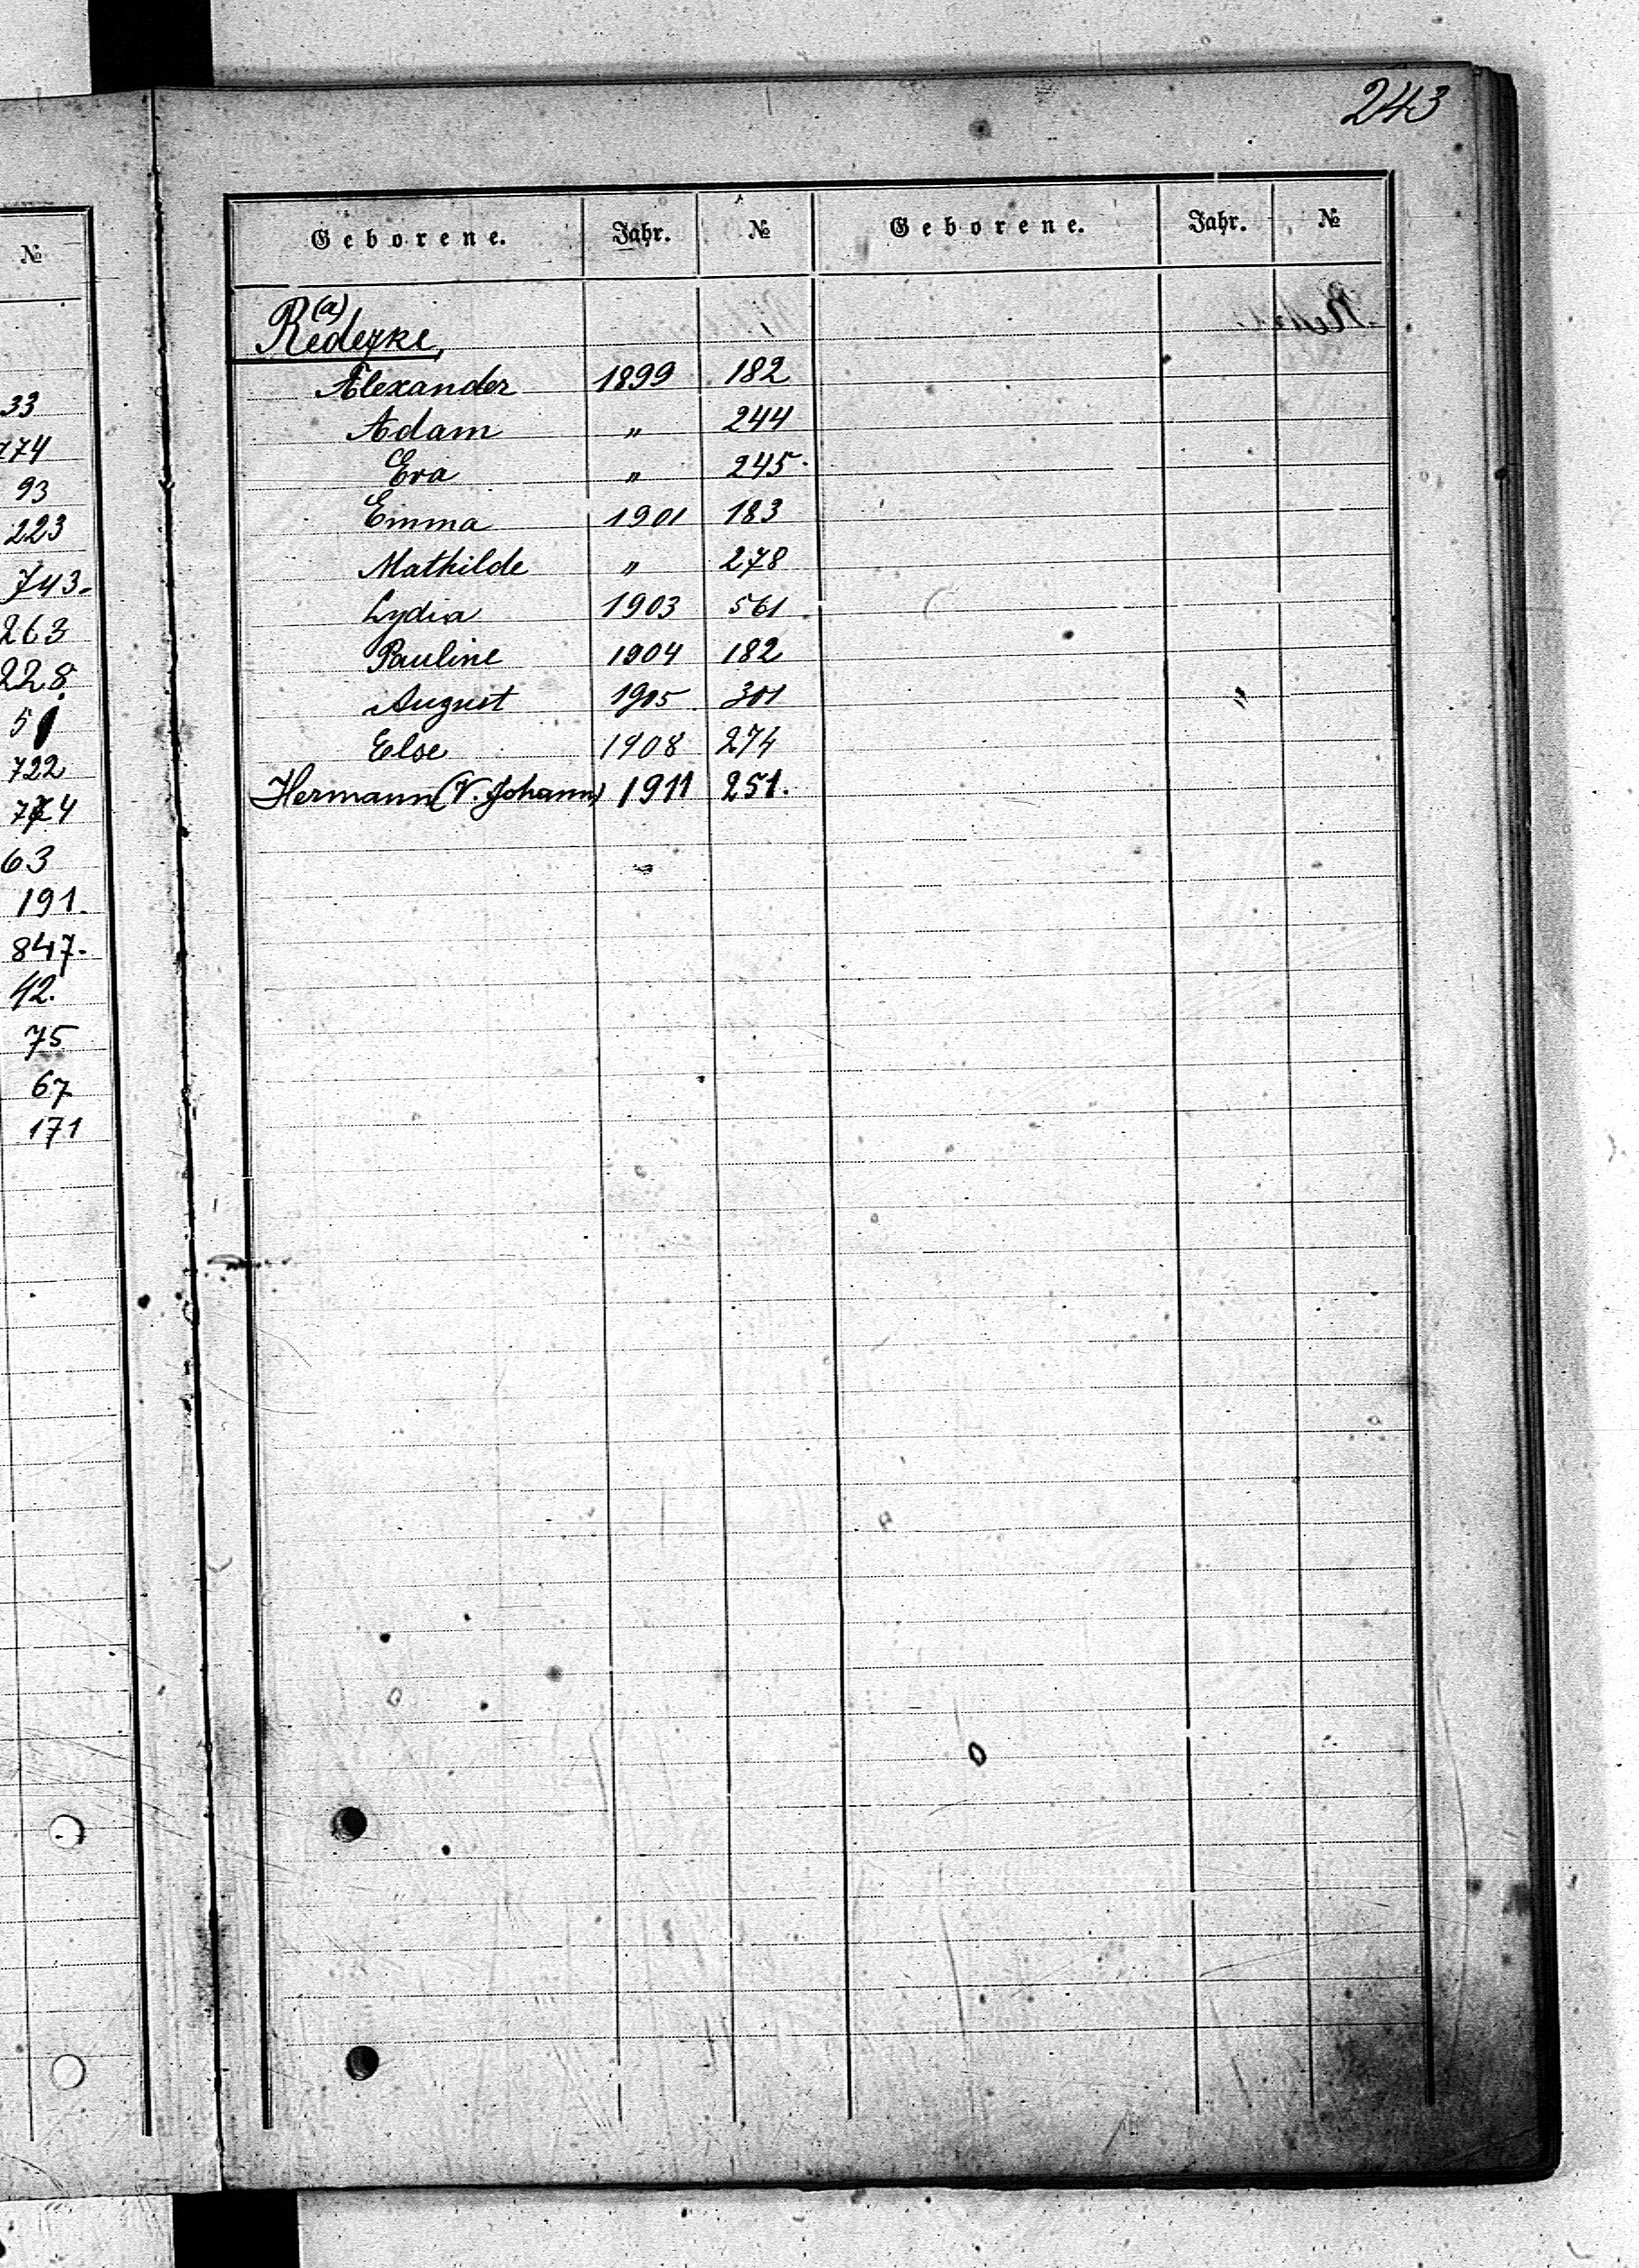 243
№
33
774
93
223
743.
263
228.
51
722
774
63
191.
847.
42.
75
67
171
Geborene. Jahr. № Geborene. Jahr. №
(a)
Redezke,
Alexander 1899 182
Adam " 244
Eva " 245.
Emma 1901 183
Mathilde " 278
Lydia 1903 561
Pauline 1904 182
August 1905 301
Else 1908 274
Hermann (V. Johann) 1911 251.